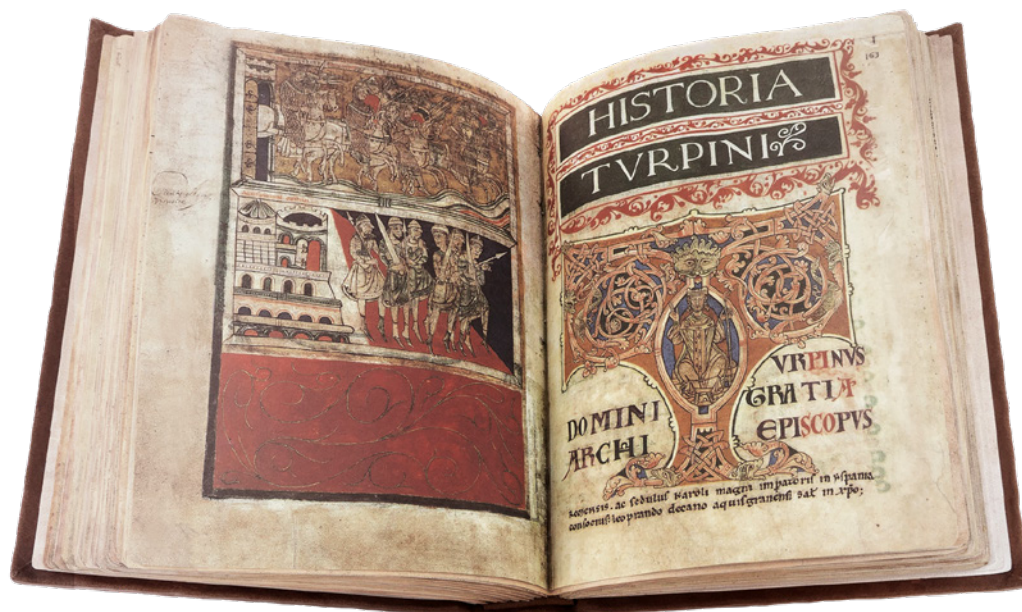 I
163
HISTORIA
TVRPINI
VRPINVS
DOMINI GRATIA
ARCHI EPISCOPVS
remensis. ac sedulus Karoli magni impatoris in yspania
consocius. leoprando decano aquisgranensi sal in xpo;